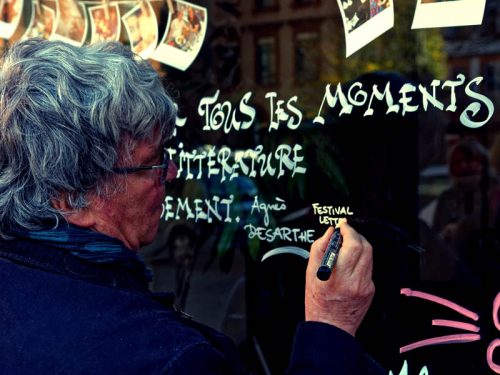 TOUS LES MOMENTS
LITTÉRATURE
EMENT. Agnès
DESARTHE
FESTIVAL
LETTR